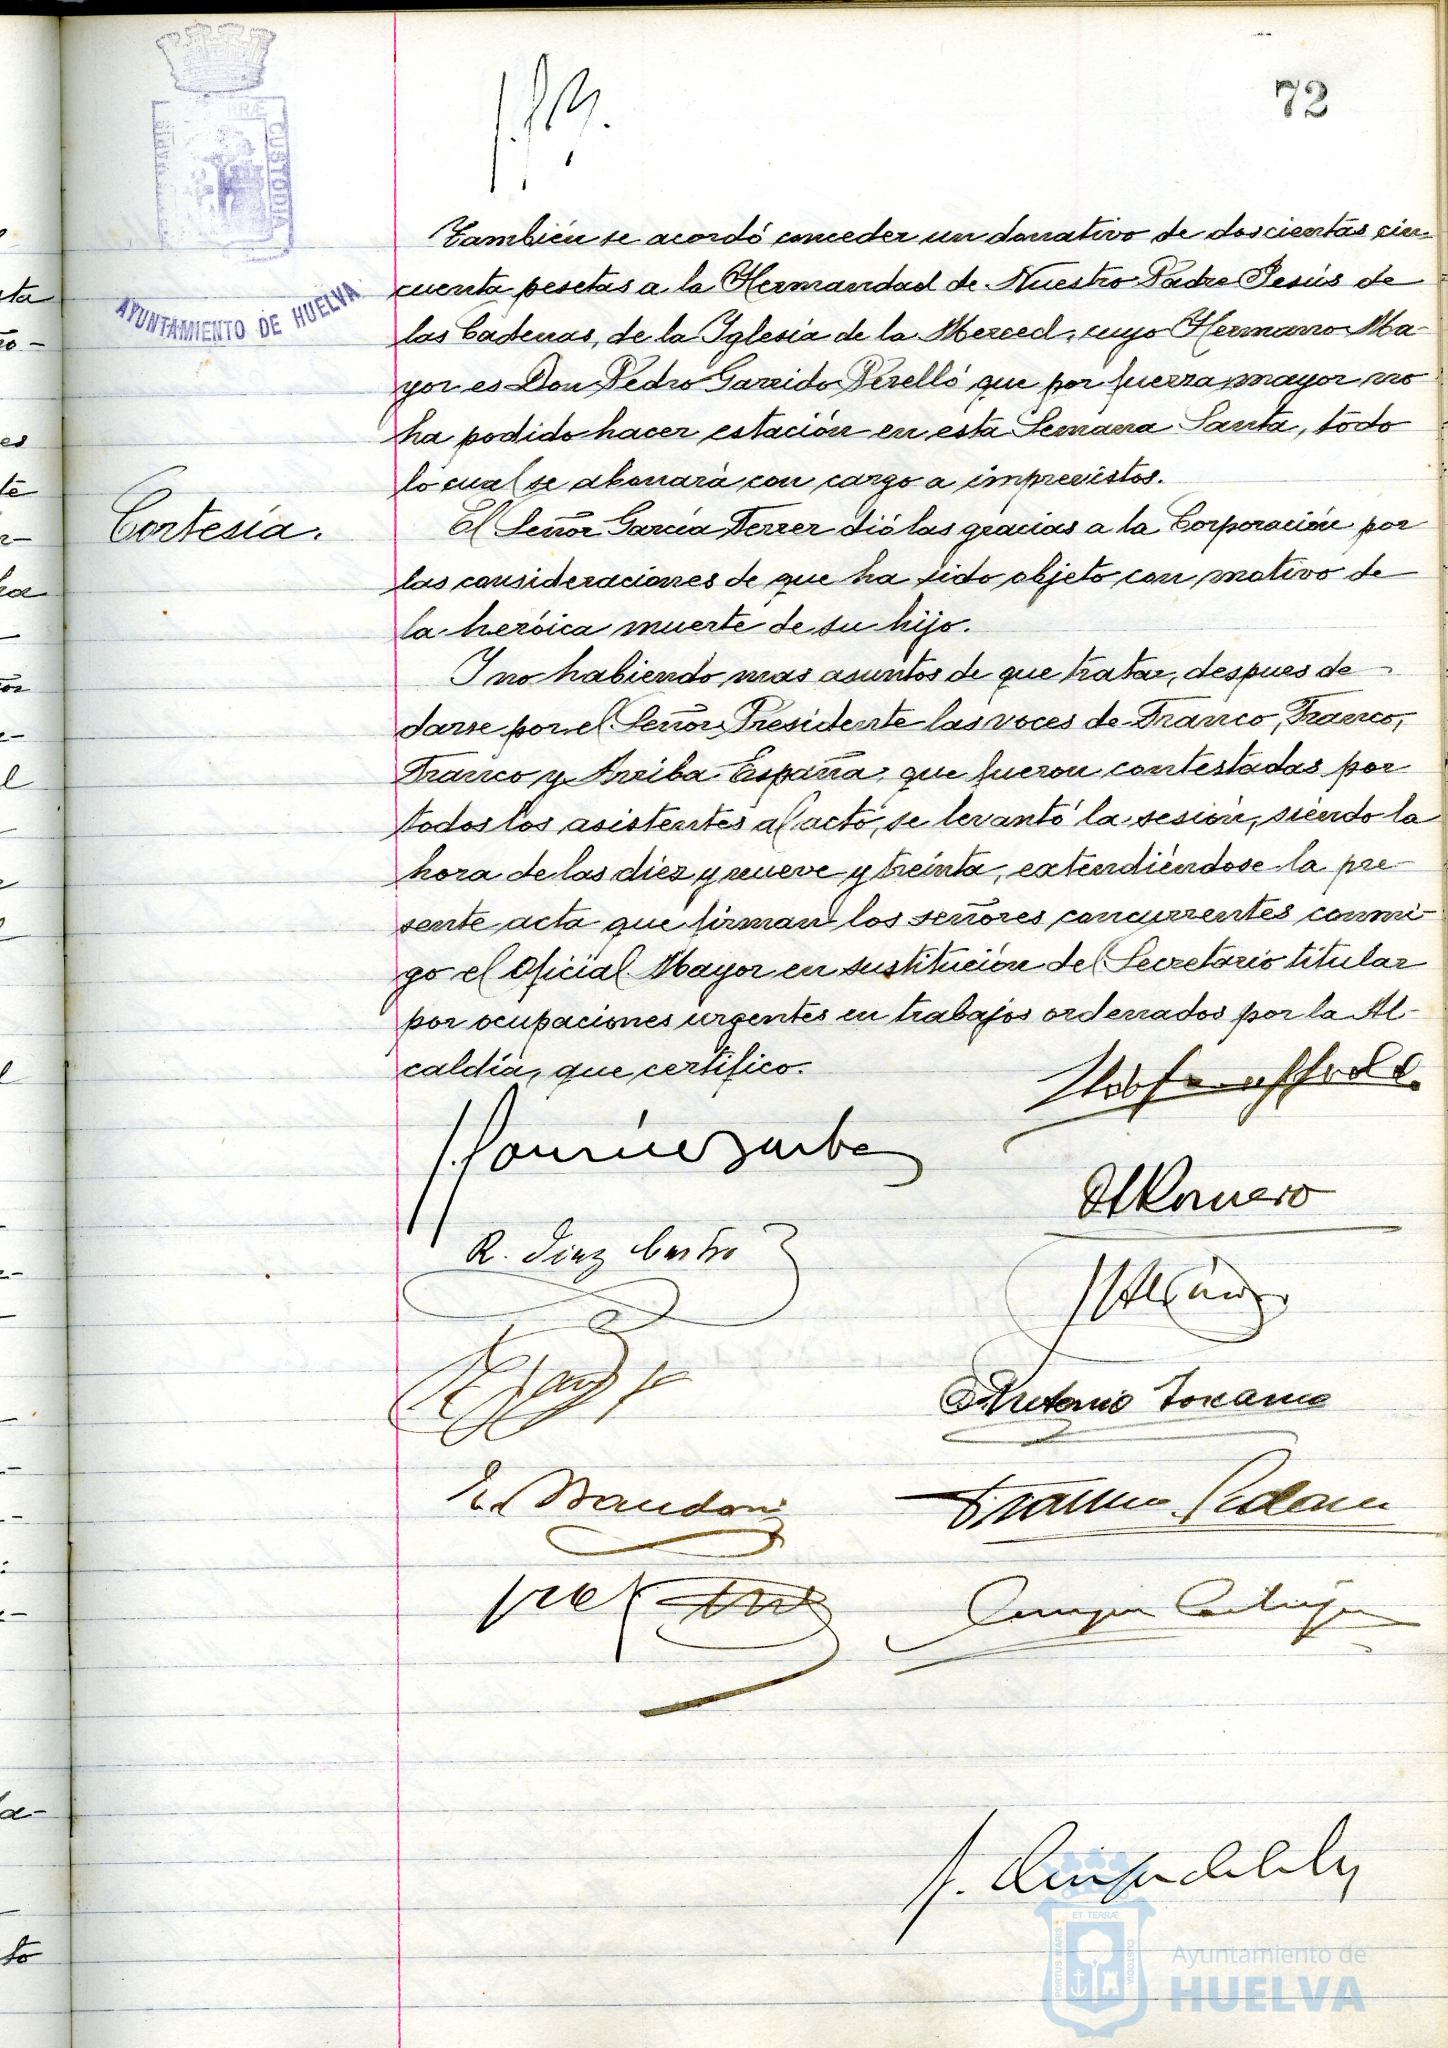 72
AYUNTAMIENTO DE HUELVA
CUSTODIA
También se acordó conceder un donativo de doscientas cin-
cuenta pesetas a la Hermandad de Nuestro Padre Jesús de
las Cadenas, de la Iglesia de la Merced, cuyo Hermano Ma-
yor es Don Pedro Garrido Perelló que por fuerza mayor no
ha podido hacer estación en esta Semana Santa, todo
lo cual se abonará con cargo a imprevistos.
Cortesía.
El Señor García Ferrer dió las gracias a la Corporación por
las consideraciones de que ha sido objeto con motivo de
la heróica muerte de su hijo.
Y no habiendo mas asuntos de que tratar, despues de
darse por el Señor Presidente las voces de Franco, Franco,
Franco y Arriba España, que fueron contestadas por
todos los asistentes al acto, se levantó la sesión, siendo la
hora de las diez y nueve y treinta, extendiéndose la pre-
sente acta que firman los señores concurrentes conmi-
go el Oficial Mayor en sustitución del Secretario titular
por ocupaciones urgentes en trabajos ordenados por la Al-
caldía, que certifico.
Romero
R. Diaz Castro
Antonio Toscano
E.
ET TERRÆ
PORTUS MARIS
CUSTODIA
Ayuntamiento de
HUELVA